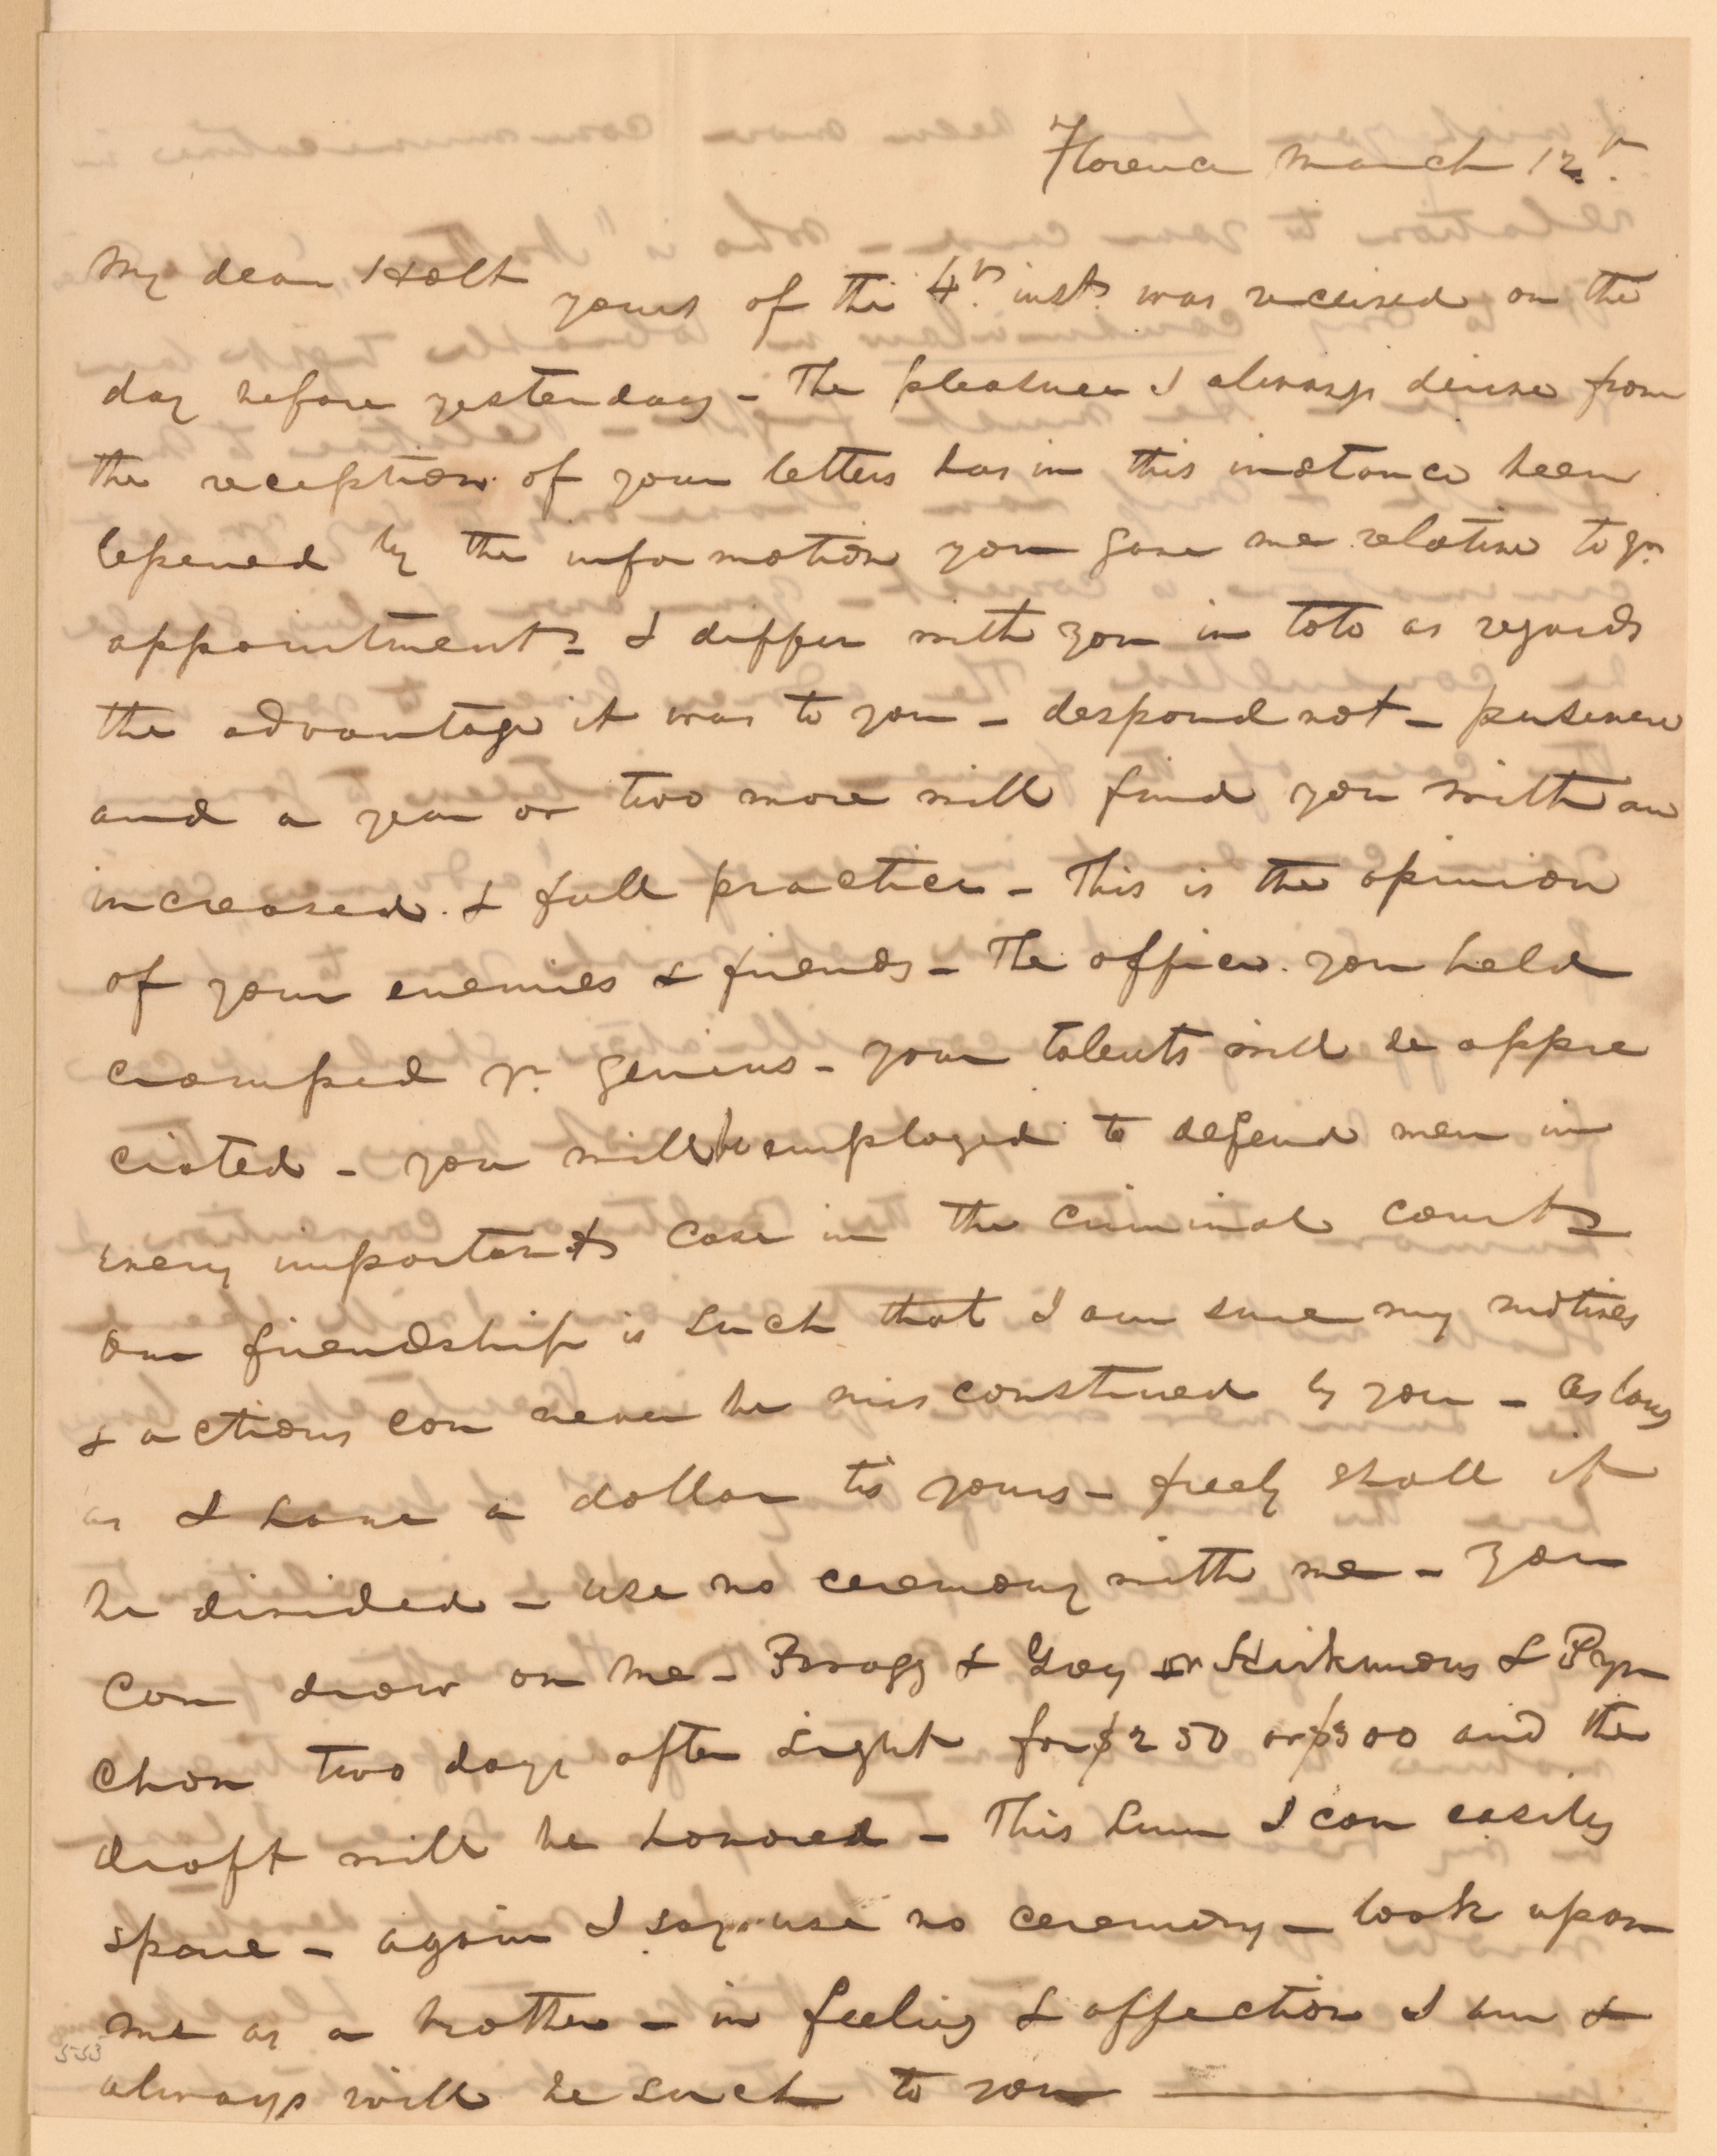 Florence March 12th.
My dear Holt
yours of the 4th. inst was received on the
day before yesterday - The pleasure I always derive from
the reception of your letters has in this instance been
lessened by the information you gave me relative to yr.
appointment - I differ with you in toto as regards
the advantage it was to you - despond not - persevere
and a year or two more will find you with an
increased & full practice - This is the opinion
of your enemies & friends - The office you held
cramped yr. genius - your talents will be appre
ciated - you will be employed to defend men in
every important case in the criminal courts
Our friendship is such that I am sure my motives
& actions can never be misconstrued by you - As long
as I have a dollar tis yours - freely shall it
be divided - use no ceremony with me - You
can draw on me - Bragg & Goy or Kirkmans & Pyn
chon two days after sight for $250 or $300 and the
draft will be honored - This sum I can easily
spare - again I say use no ceremony - look upon
me as a brother - in feeling & affection I am &
always will be such to you
553